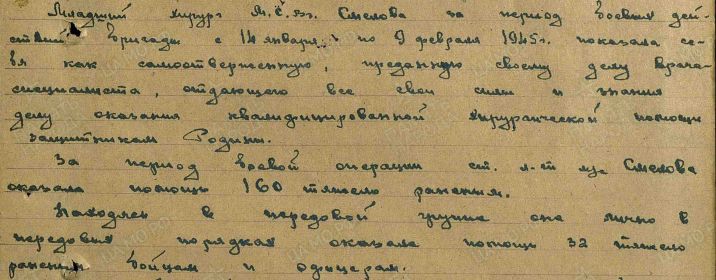 Младший хирург м.с.вз. Смелова за период боевых дей-
ствий бригады с 14 января по 9 февраля 1945г. показала се-
бя как самоотверженную, преданную своему делу врача-
специалиста, отдающего все свои силы и знания
делу оказания квалифицированной хирургической помощи
защитникам Родины.
За период боевой операции ст. л-т м/с Смелова
оказала помощь 160 тяжело раненым.
Находясь в передовой группе она лично в
передовых порядках оказала помощь 32 тяжело
раненым бойцам и офицерам.